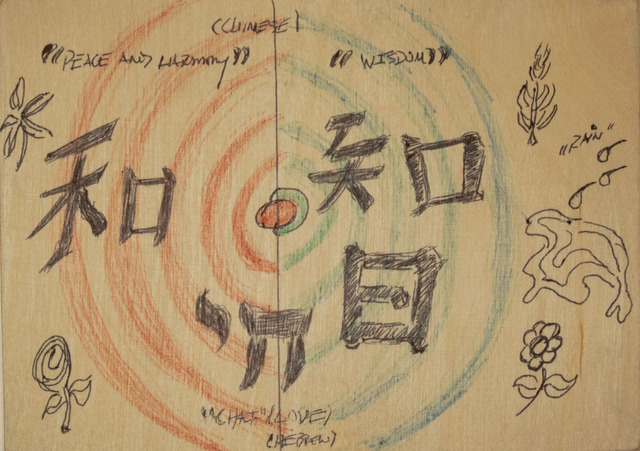 (CHINESE)
"PEACE AND HARMONY"
"WISDOM"
"RAIN"
和
智
חי
"CHAI" (LOVE)
(HEBREW)